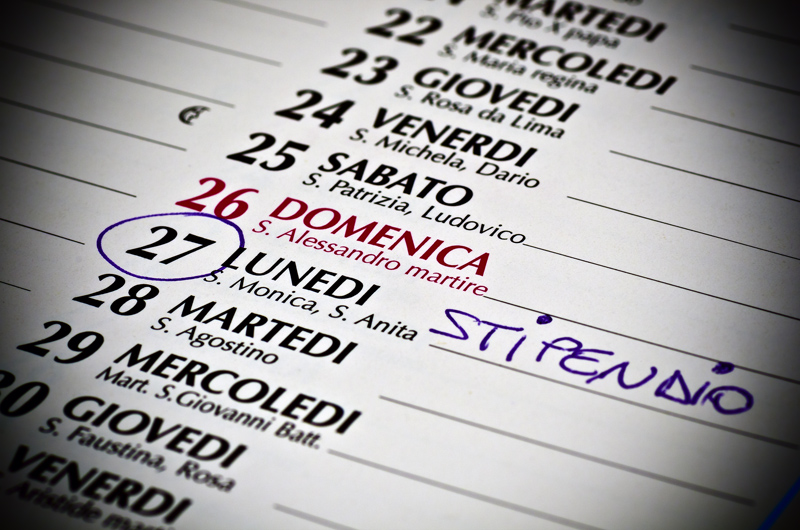 MARTEDI
S. Pio X papa
22 MERCOLEDI
S. Maria regina
23 GIOVEDI
S. Rosa da Lima
24 VENERDI
S. Michela, Dario
25 SABATO
S. Patrizia, Ludovico
26 DOMENICA
S. Alessandro martire
27 LUNEDI
S. Monica, S. Anita STIPENDIO
28 MARTEDI
S. Agostino
29 MERCOLEDI
Mart. S. Giovanni Batt.
30 GIOVEDI
S. Faustina, Rosa
VENERDI
S. Aristide